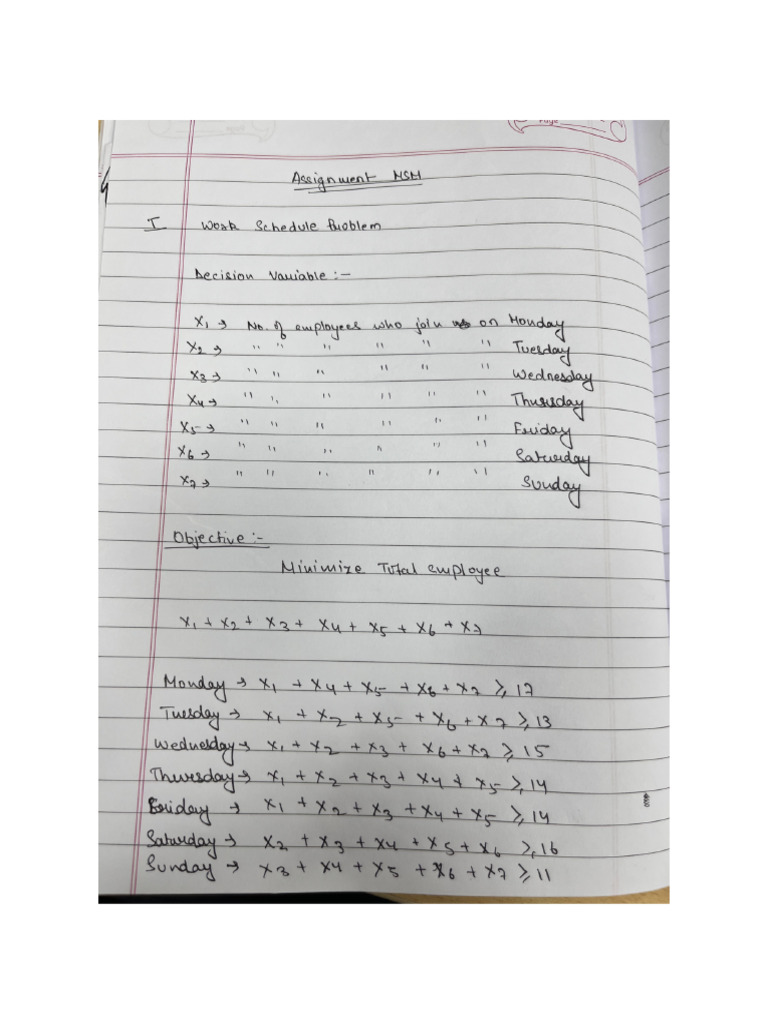 Page
Assignment MSM
I Work Schedule Problem
Decision Variable :-
X1 → No. of employees who join on Monday
X2 → " " " " " " Tuesday
X3 → " " " " " " Wednesday
X4 → " " " " " " Thursday
X5 → " " " " " " Friday
X6 → " " " " " " Saturday
X7 → " " " " " " Sunday
Objective :-
Minimize Total employee
X1 + X2 + X3 + X4 + X5 + X6 + X7
Monday → X1 + X4 + X5 + X6 + X7 ≥ 17
Tuesday → X1 + X2 + X5 + X6 + X7 ≥ 13
Wednesday → X1 + X2 + X3 + X6 + X7 ≥ 15
Thursday → X1 + X2 + X3 + X4 + X5 ≥ 14
Friday → X1 + X2 + X3 + X4 + X5 ≥ 14
Saturday → X2 + X3 + X4 + X5 + X6 ≥ 16
Sunday → X3 + X4 + X5 + X6 + X7 ≥ 11